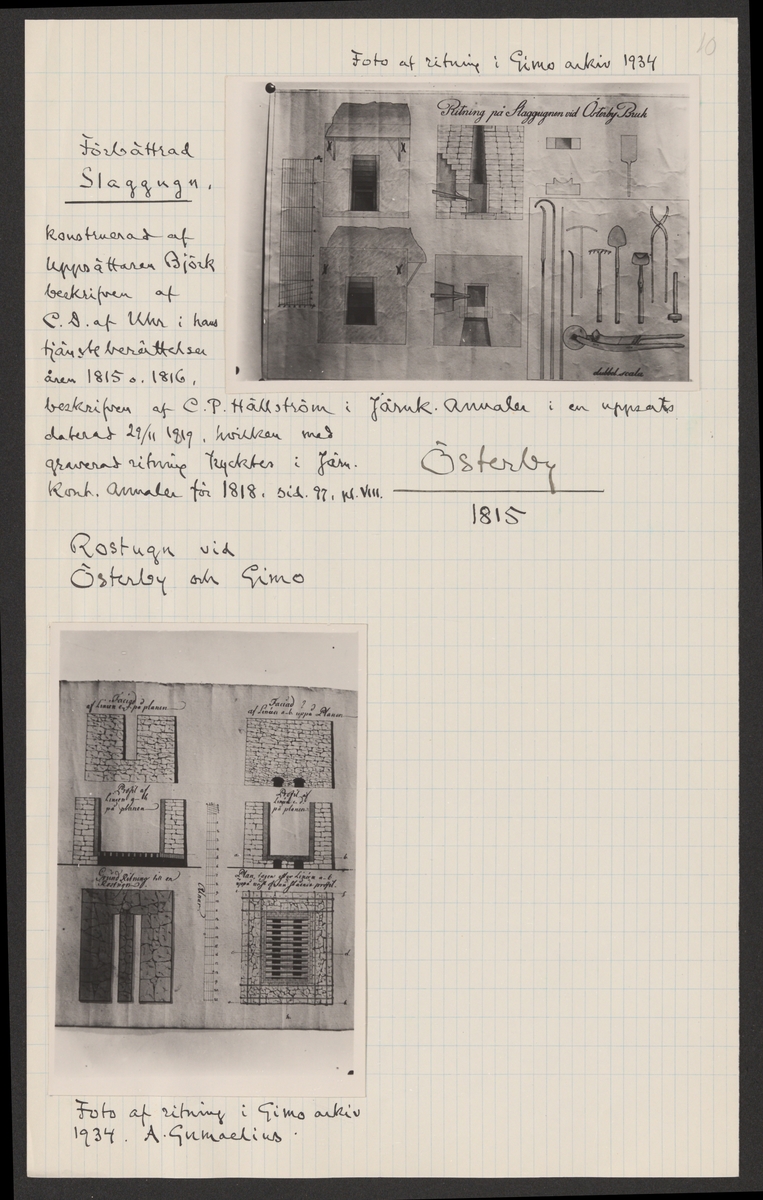 10
Foto af ritning i Gimo arkiv 1934
Ritning på Slaggugnen vid Österby Bruk
Förbättrad
Slaggugn.
konstruerad af
Uppsättaren Björk
beskrifven af
C.D. af Uhr i hans
tjänsteberättelser
åren 1815 o. 1816,
beskrifven af C.P. Hällström i Järnk. Annaler i en uppsats
daterad 29/11 1819, hvilken med
graverad ritning trycktes i Järn.
Kont. Annaler för 1818, sid. 97, pl. VIII.
Österby
1815
Rostugn vid
Österby och Gimo
Facied
af Linien e.f. på planen
Facied
af Linien a.b uppå Planen
Profil af
Linien g-h
på planen
Profil af
Linien c.d
på planen
Grund Ritning till en
Rostugn
Plan, tagen efter Linien a.b
Alnar
Foto af ritning i Gimo arkiv
1934. A. Gumaelius.